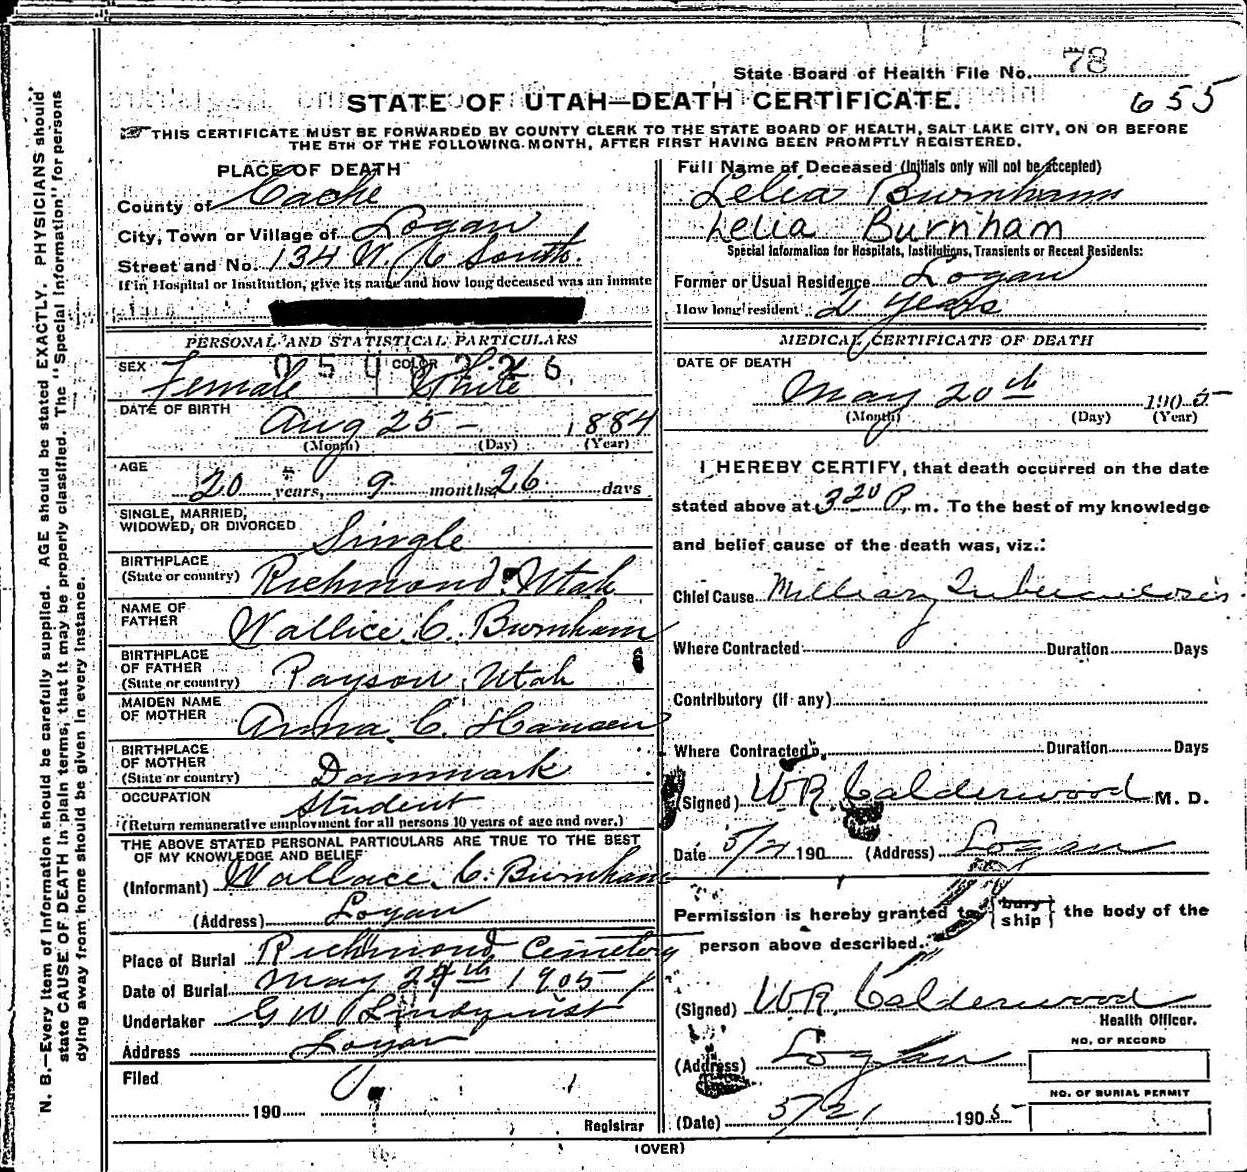 State Board of Health File No. 78
STATE OF UTAH—DEATH CERTIFICATE.
655
THIS CERTIFICATE MUST BE FORWARDED BY COUNTY CLERK TO THE STATE BOARD OF HEALTH, SALT LAKE CITY, ON OR BEFORE
THE 5TH OF THE FOLLOWING MONTH, AFTER FIRST HAVING BEEN PROMPTLY REGISTERED.
PLACE OF DEATH
County of Cache
City, Town or Village of Logan
Street and No. 134 W. South.
If in Hospital or Institution, give its name and how long deceased was an inmate
PERSONAL AND STATISTICAL PARTICULARS
SEX Female COLOR White
DATE OF BIRTH
Aug 25 - 1884
(Month) (Day) (Year)
AGE
20 years, 9 months 26 days
SINGLE, MARRIED,
WIDOWED, OR DIVORCED Single
BIRTHPLACE
(State or country) Richmond Utah
NAME OF
FATHER Wallice C. Burnham
BIRTHPLACE
OF FATHER
(State or country) Payson, Utah
MAIDEN NAME
OF MOTHER Anna C. Hansen
BIRTHPLACE
OF MOTHER
(State or country) Danmark
OCCUPATION Student
(Return remunerative employment for all persons 10 years of age and over.)
THE ABOVE STATED PERSONAL PARTICULARS ARE TRUE TO THE BEST
OF MY KNOWLEDGE AND BELIEF
(Informant) Wallace C. Burnham
(Address) Logan
Place of Burial Richmond Cemetery
Date of Burial May 24th 1905
Undertaker G W Lindquist
Address Logan
Filed
190
Registrar
Full Name of Deceased (Initials only will not be accepted)
Lelia Burnham
Lelia Burnham
Special Information for Hospitals, Institutions, Transients or Recent Residents:
Former or Usual Residence Logan
How long resident 2 years
MEDICAL CERTIFICATE OF DEATH
DATE OF DEATH
May 20th 1905
(Month) (Day) (Year)
I HEREBY CERTIFY, that death occurred on the date
stated above at 3 20 P. m. To the best of my knowledge
and belief cause of the death was, viz.:
Chief Cause Milleary Tuberculosis
Where Contracted Duration Days
Contributory (if any)
Where Contracted Duration Days
(Signed) W R. Calderwood M. D.
Date 5/21 190 (Address) Logan
Permission is hereby granted to {bury ship} the body of the
person above described.
(Signed) W R. Calderwood
Health Officer.
(Address) Logan
NO. OF RECORD
NO. OF BURIAL PERMIT
(Date) 5/21 1905
(OVER)
N. B.—Every item of information should be carefully supplied. AGE should be stated EXACTLY. PHYSICIANS should
state CAUSE OF DEATH in plain terms, that it may be properly classified. The "Special Information" for persons
dying away from home should be given in every instance.